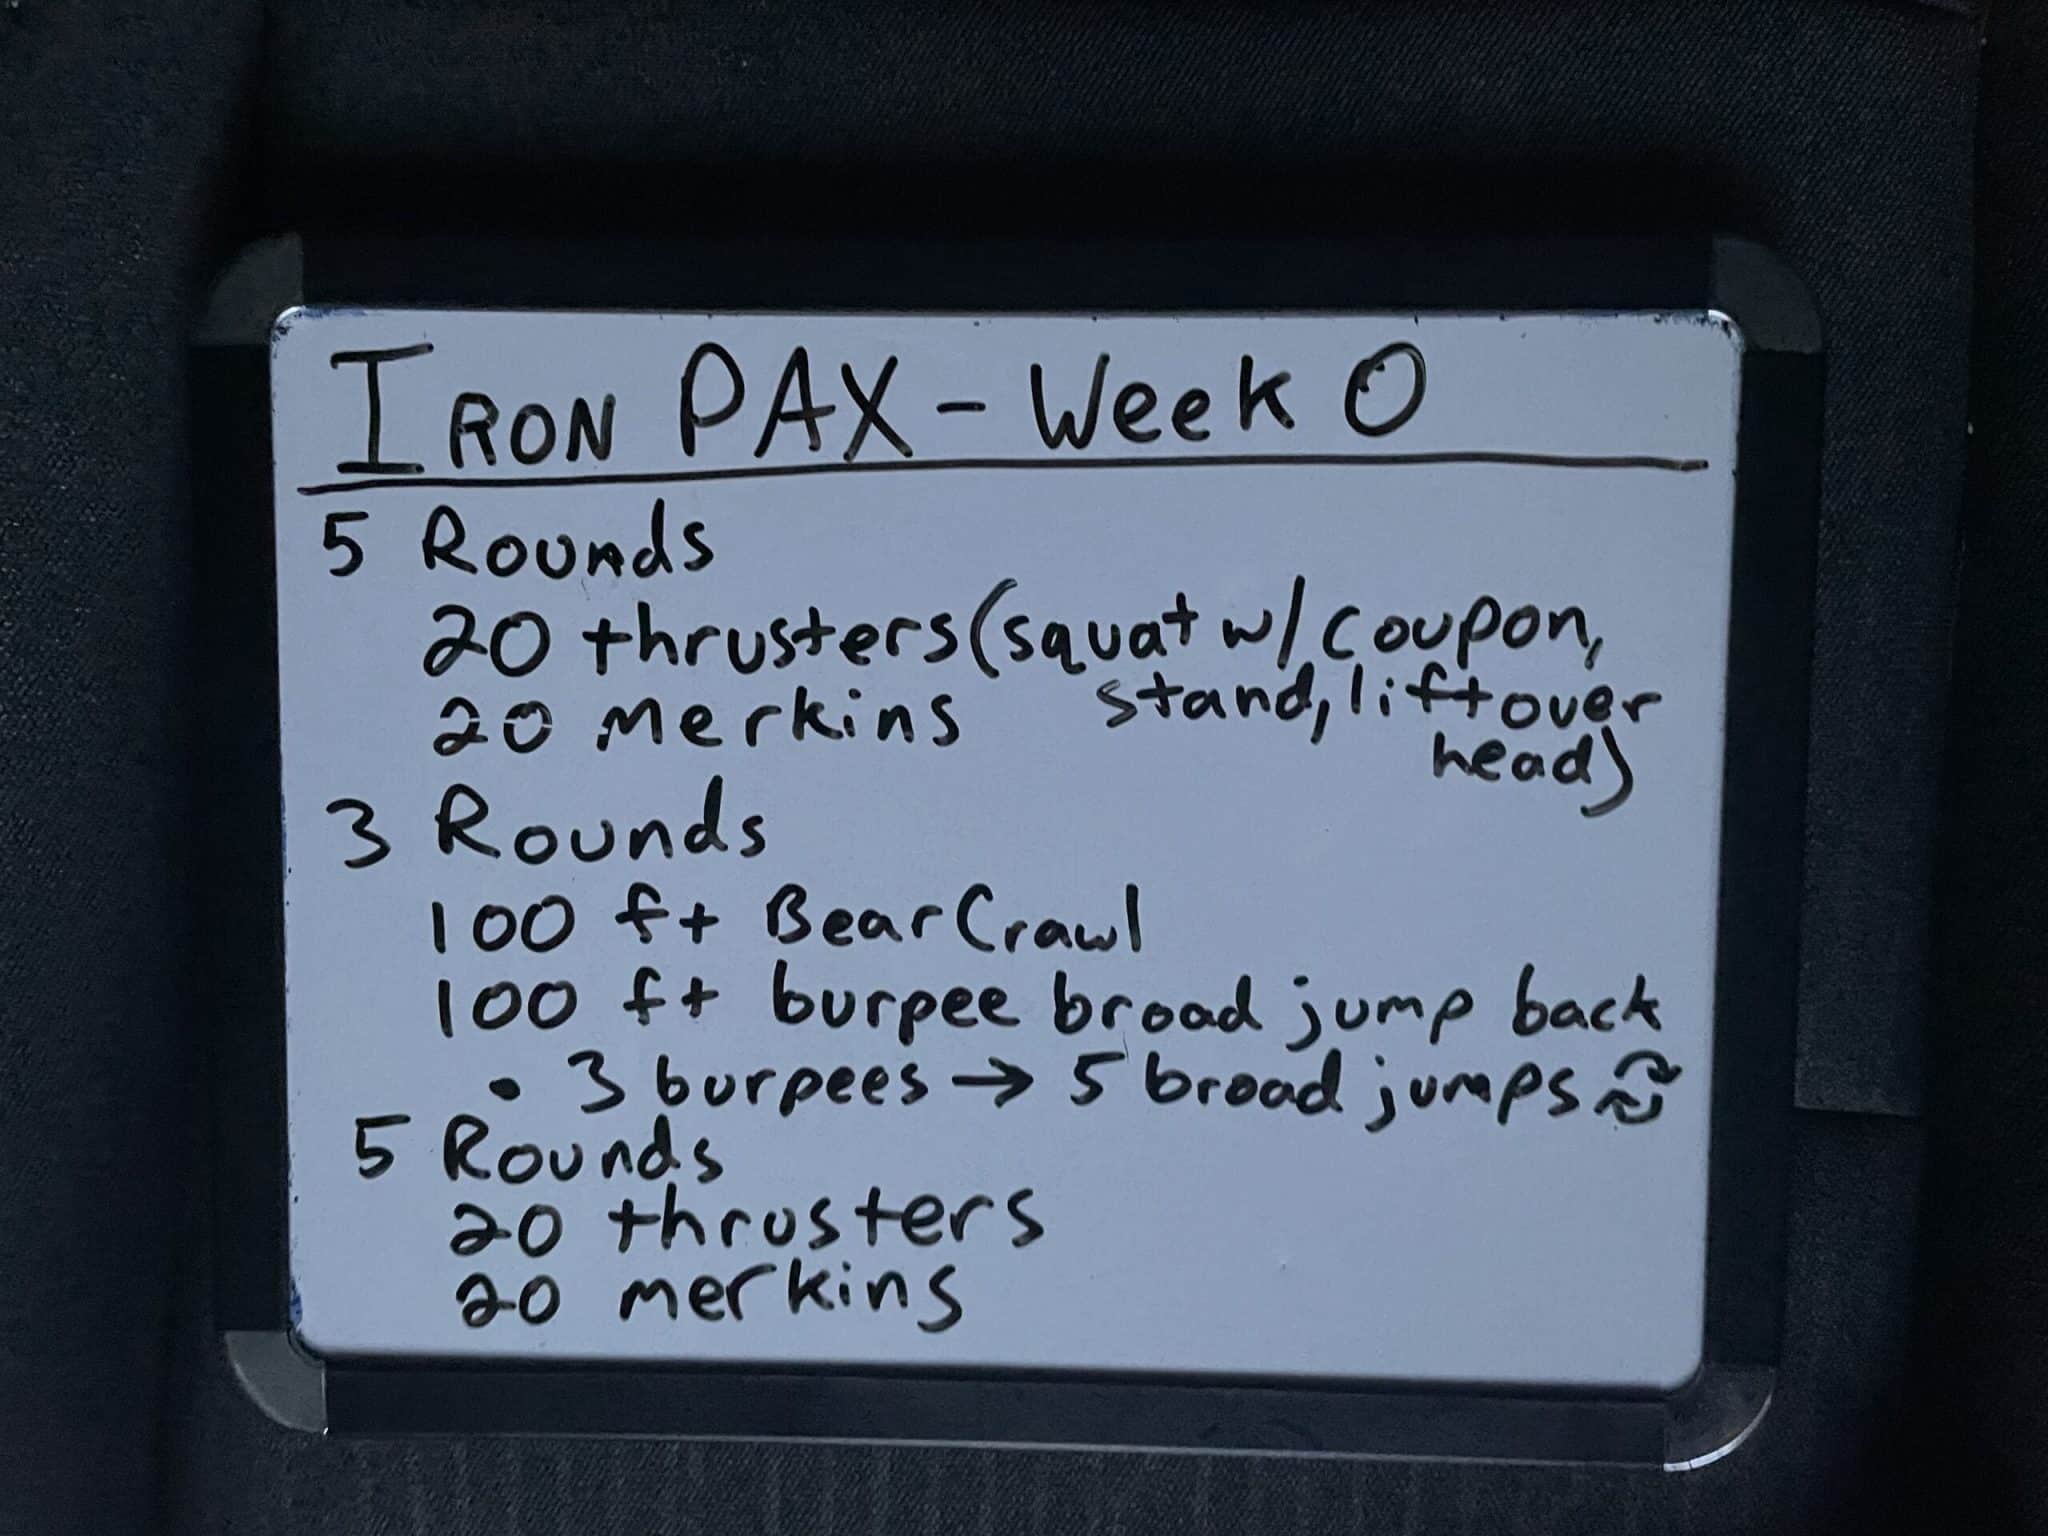 Iron PAX - Week 0
5 Rounds
20 thrusters (squat w/ coupon,
stand, lift over
head)
20 merkins
3 Rounds
100 ft Bear Crawl
100 ft burpee broad jump back
• 3 burpees → 5 broad jumps
5 Rounds
20 thrusters
20 merkins